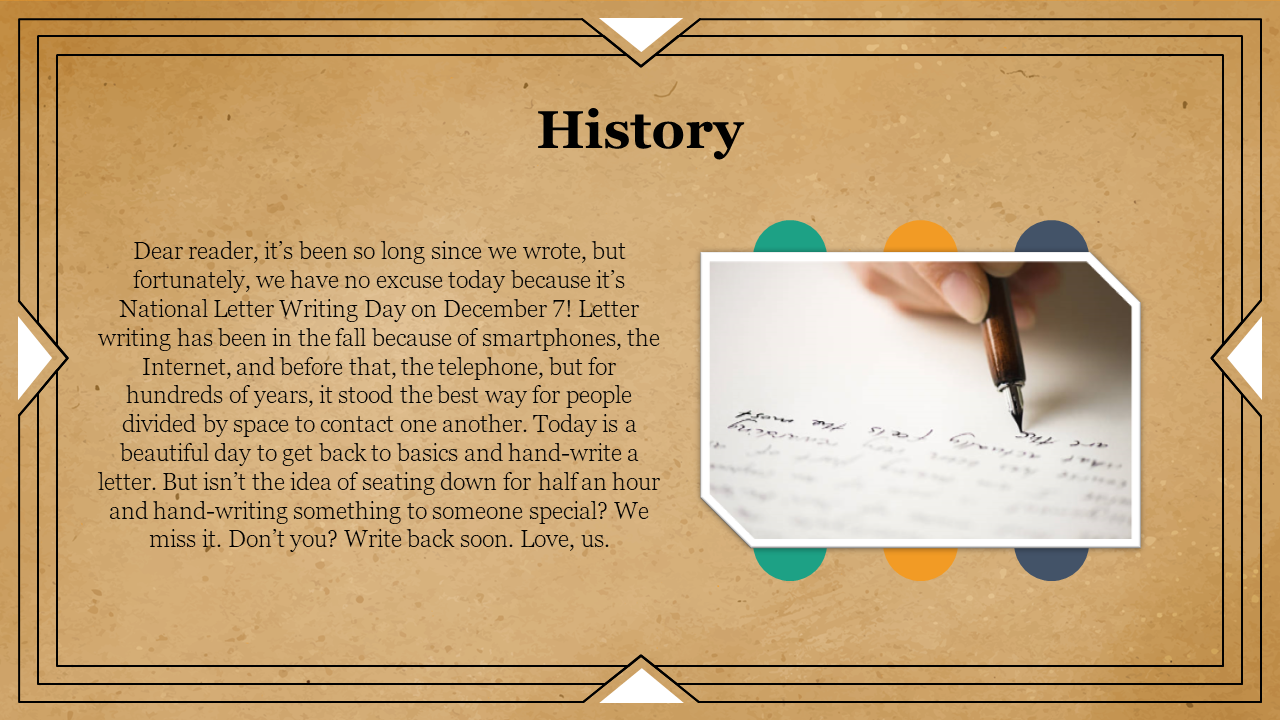 History
Dear reader, it’s been so long since we wrote, but
fortunately, we have no excuse today because it’s
National Letter Writing Day on December 7! Letter
writing has been in the fall because of smartphones, the
Internet, and before that, the telephone, but for
hundreds of years, it stood the best way for people
divided by space to contact one another. Today is a
beautiful day to get back to basics and hand-write a
letter. But isn’t the idea of seating down for half an hour
and hand-writing something to someone special? We
miss it. Don’t you? Write back soon. Love, us.
are the actually feels the most